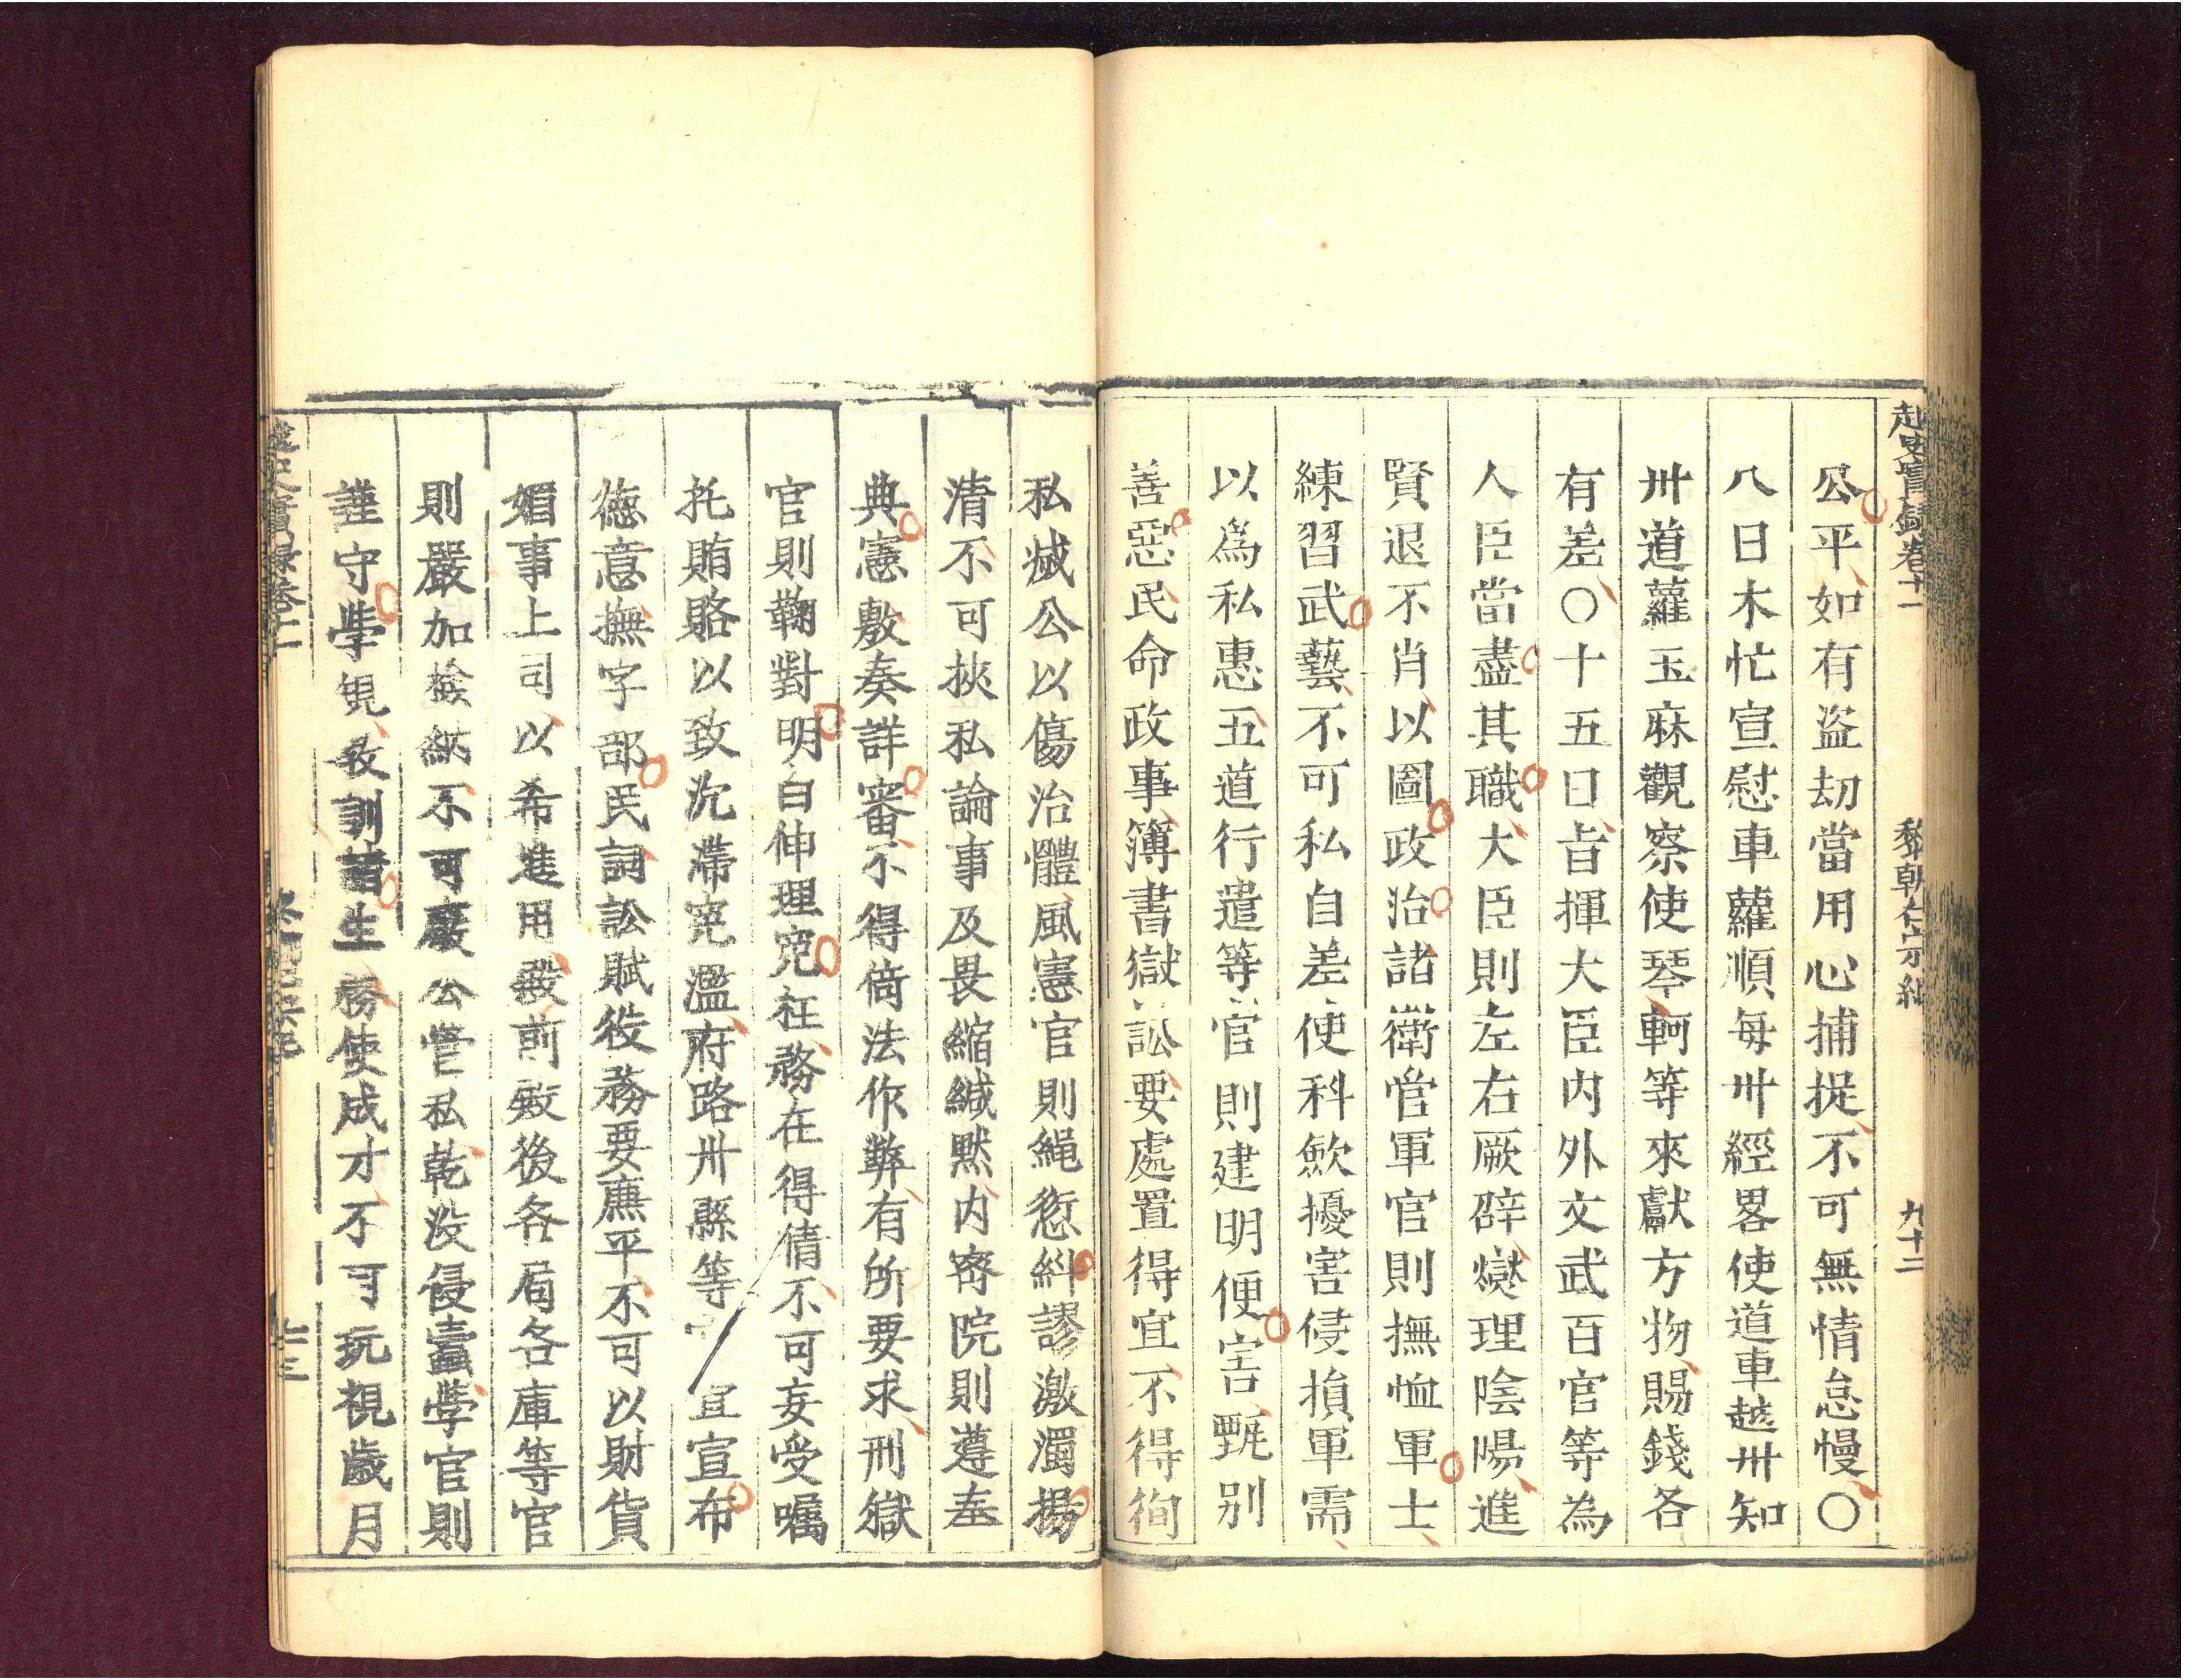 越史實錄卷十一 黎朝仁宗紀 九十二
公平如有盗劫當用心捕捉不可無情怠慢〇
八日木忙宣慰車蘿順每卅經畧使道車越卅知
卅道蘿玉麻觀察使琴軻等來獻方物賜錢各
有差〇十五日㫖揮大臣内外文武百官等為
人臣當盡其職大臣則左右厥辟燮理陰陽進
賢退不肖以圖政治諸衛官軍官則撫恤軍士
練習武藝不可私自差使科歛擾害侵損軍需
以為私惠五道行遣等官則建明便害甄别
善惡民命政事簿書獄訟要處置得宜不得徇
私滅公以傷治體風憲官則繩愆糾謬激濁揚
清不可挾私論事及畏縮緘默内宻院則遵奉
典憲敷奏詳審不得倚法作弊有所要求刑獄
官則鞫對明白伸理寃枉務在得情不可妄受囑
托賄賂以致沉滯寃濫府路卅縣等 宜宣布
德意撫字部民詞訟賦役務要廉平不可以財貨
媚事上司以希進用殿前殿後各局各庫等官
則嚴加撿納不可廢公營私乾没侵蠹學官則
謹守學規教訓諸生務使成才不可玩視歲月